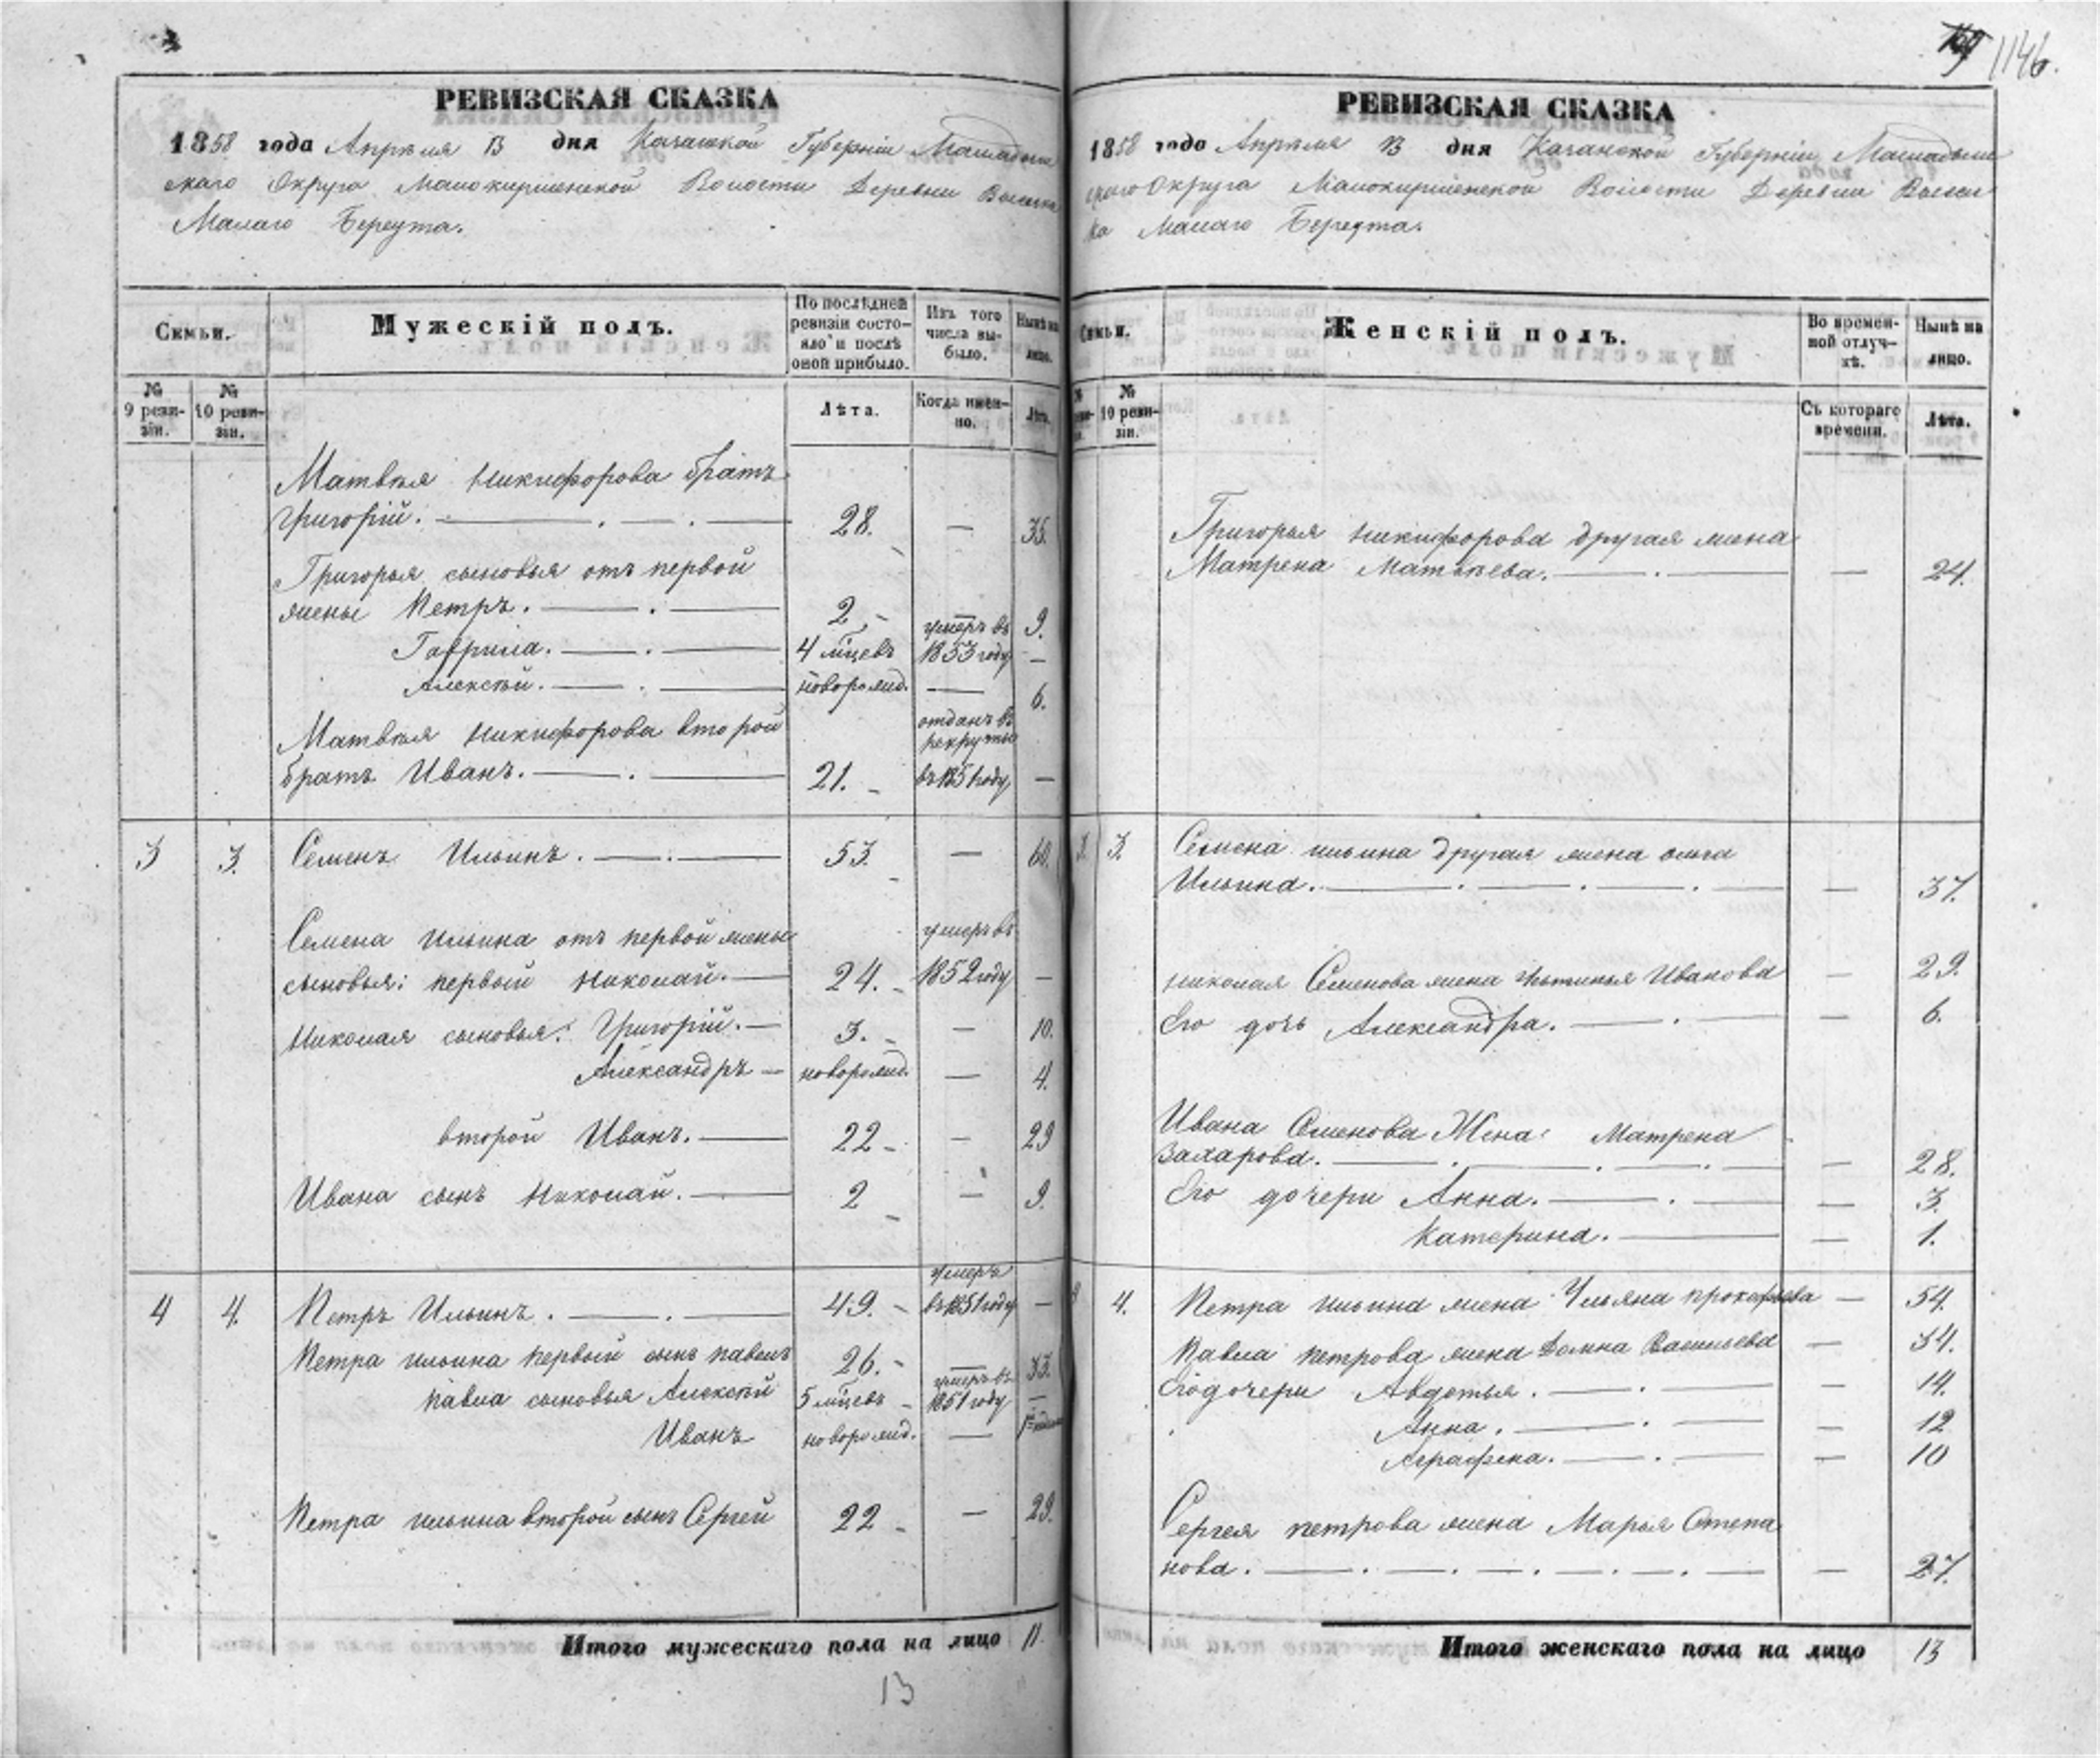 3
РЕВИЗСКАЯ СКАЗКА
1858 года Апрѣля 13 дня Казанской Губерніи Мамадыш
скаго Округа Малокирменской Волости Деревни Выселка
Малаго Береута.
Семьи.
Мужескій полъ.
По послѣдней
ревизіи состо-
яло и послѣ
оной прибыло.
Изъ того
числа вы-
было.
Нынѣ на
лицо.
№
9 реви-
зіи.
№
10 реви-
зіи.
Лѣта.
Когда имен-
но.
Лѣта.
Матвѣя Никифорова братъ
Григорій. 28. — 35.
Григорья сыновья отъ первой
жены Петръ. 2 — 9.
Гаврила. 4 мѣсцевъ умеръ въ 1853 году —
Алексѣй. новорожд. — 6.
Матвѣя Никифорова второй
братъ Иванъ. 21. отданъ въ рекруты въ 1851 году —
3 3. Семенъ Ильинъ. 53. — 60.
Семена Ильина отъ первой жены
сыновья: первый Николай. 24. умеръ въ 1852 году —
Николая сыновья: Григорій. 3. — 10.
Александръ новорожд. — 4.
второй Иванъ. 22 — 29
Ивана сынъ Николай. 2 — 9.
4 4. Петръ Ильинъ. 49. умеръ въ 1851 году —
Петра Ильина первый сынъ Павелъ 26. — 33.
Павла сыновья Алексѣй 5 мѣсцевъ умеръ въ 1851 году —
Иванъ новорожд. —
Петра Ильина второй сынъ Сергей 22 — 29.
Итого мужескаго пола на лицо 11.
13
1146.
РЕВИЗСКАЯ СКАЗКА
1858 года Апрѣля 13 дня Казанской Губерніи Мамадыш
скаго Округа Малокирменской Волости Деревни Высел
ка Малаго Береута.
Семьи.
Женскій полъ.
Во времен-
ной отлуч-
кѣ.
Нынѣ на
лицо.
№
10 реви-
зіи.
Съ котораго
времени.
Лѣта.
Григорья Никифорова другая жена
Матрена Матвѣева. — 24.
3. 3. Семена Ильина другая жена Ольга
Ильина. — 37.
Николая Семенова жена Фетинья Иванова — 29.
Его дочь Александра. — 6.
Ивана Семенова Жена: Матрена
Захарова. — 28.
Его дочери Анна. — 3.
Катерина. — 1.
4. Петра Ильина жена Ульяна Прокофьева — 54.
Павла Петрова жена Домна Васильева — 34.
Его дочери Авдотья. — 14.
Анна. — 12
Аграфена. — 10
Сергея Петрова жена Марья Степа
нова. — 27.
Итого женскаго пола на лицо 13